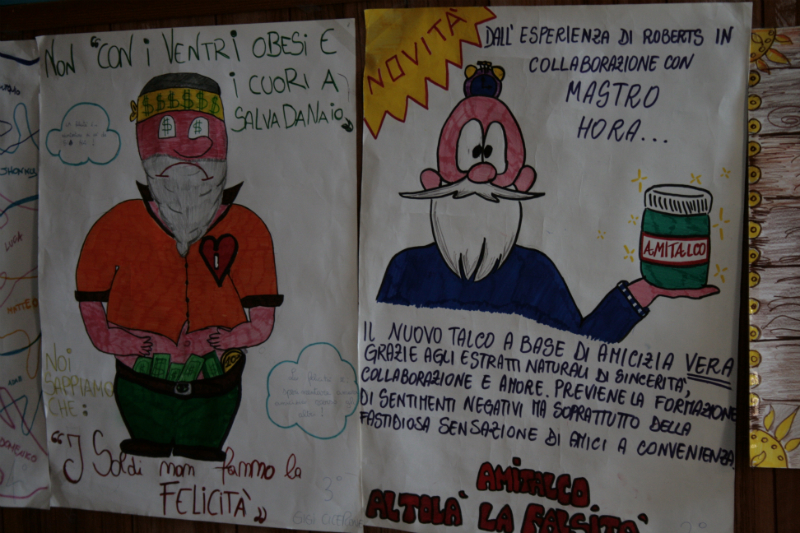 NON "CON I VENTRI OBESI E
I CUORI A
SALVADANAIO"
$$$$$$
$ $
NOI
SAPPIAMO
CHE:
"I Soldi non fanno la
FELICITÀ"
3°
NOVITÀ
DALL'ESPERIENZA DI ROBERTS IN
COLLABORAZIONE CON
MASTRO
HORA...
AMITALCO
IL NUOVO TALCO A BASE DI AMICIZIA VERA
GRAZIE AGLI ESTRATTI NATURALI DI SINCERITÀ,
COLLABORAZIONE E AMORE. PREVIENE LA FORMAZIONE
DI SENTIMENTI NEGATIVI MA SOPRATTUTTO DELLA
FASTIDIOSA SENSAZIONE DI AMICI A CONVENIENZA.
AMITALCO,
ALTOLÀ LA FALSITÀ
LUCIA